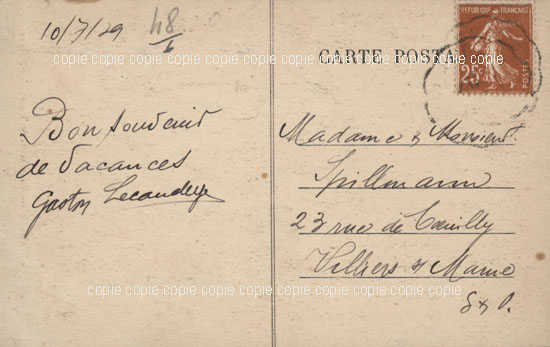 10/7/29 48/6
CARTE POSTA
REPUBLIQUE FRANÇAISE
25c
POSTES
copie copie copie copie copie copie copie copie copie copie copie copie
Bon souvenir
de Vacances
Gaston
Madame & Monsieur
Spillmann
23 rue de Cœuilly
Villiers s/ Marne
S & O.
copie copie copie copie copie copie copie copie copie copie copie